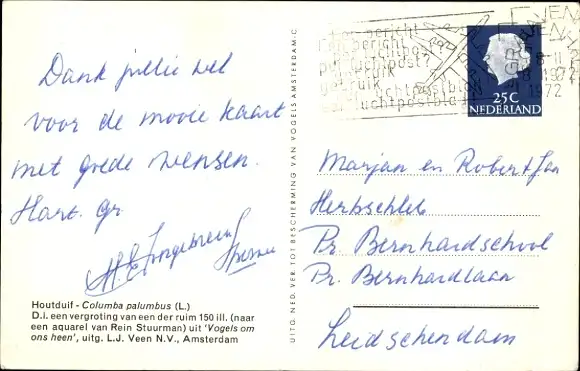 Dank jullie wel
voor de mooie kaart
met goede wensen.
Hart. gr.
Houtduif - Columba palumbus (L.)
D.i. een vergroting van een der ruim 150 ill. (naar
een aquarel van Rein Stuurman) uit 'Vogels om
ons heen', uitg. L.J. Veen N.V., Amsterdam
UITG. NED. VER. TOT BESCHERMING VAN VOGELS AMSTERDAM-C
bericht
bericht
luchtpost?
gebruik
luchtpostblad
1972
1972
25C
NEDERLAND
Marjan en Robert Jan
Herbschleb
Pr. Bernhardschool
Pr. Bernhardlaan
Leidschendam